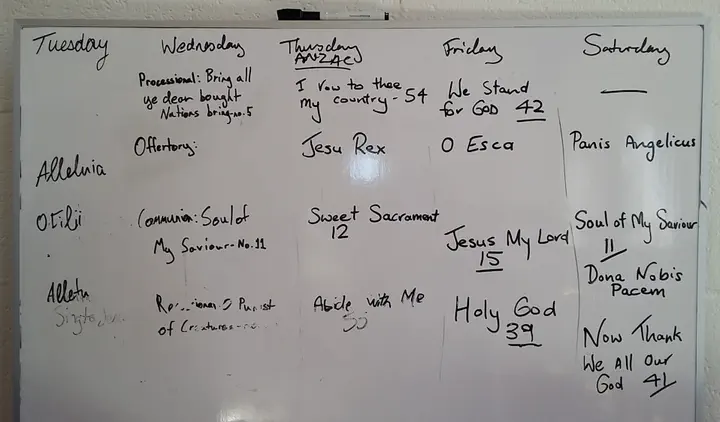 Tuesday
Alleluia
O Filii
Wednesday
Processional: Bring all
ye dear bought
Nations bring-no.5
Offertory:
Communion: Soul of
My Saviour-No.11
Purist
of Creatures
Thursday
ANZAC
I vow to thee
my country - 54
Jesu Rex
Sweet Sacrament
12
Abide with Me
Friday
We Stand
for God 42
O Esca
Jesus My Lord
15
Holy God
39
Saturday
Panis Angelicus
Soul of My Saviour
11
Dona Nobis
Pacem
Now Thank
We All Our
God 41